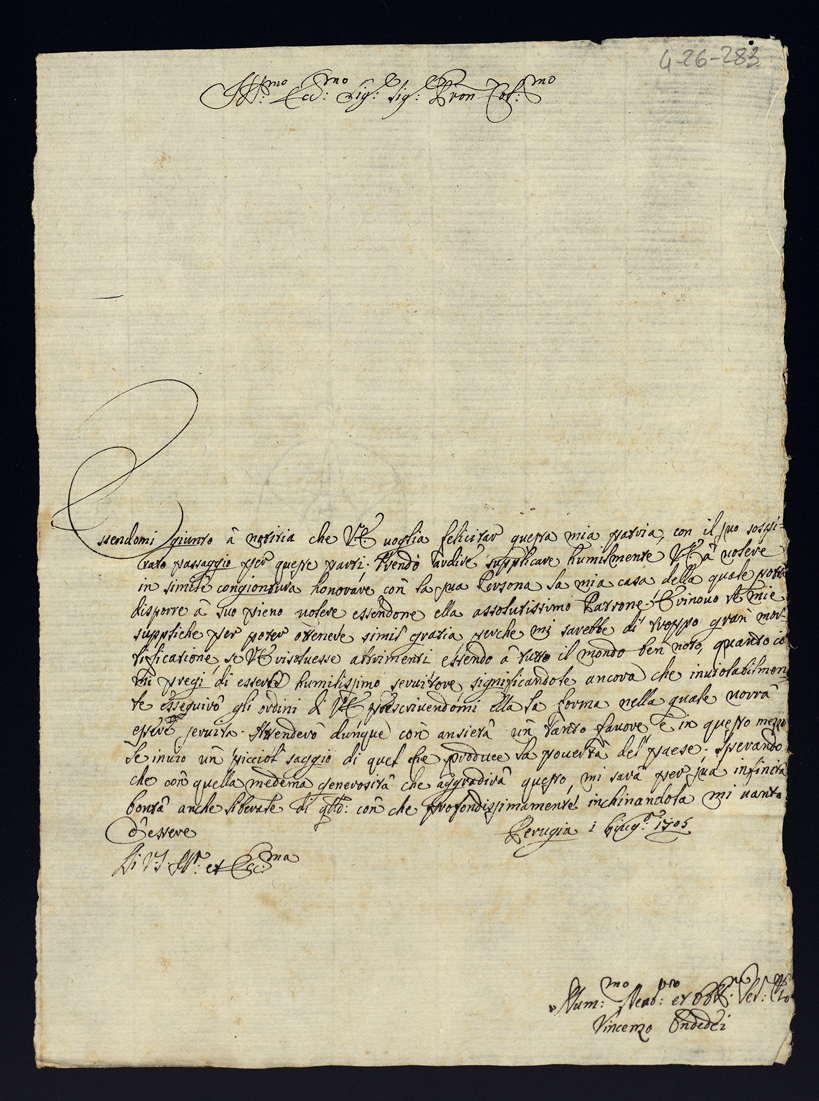 4-26-283
Ill:mo Ecc:mo Sig: Sig: Pron Col:mo
Essendomi giunto à notitia che V.E. voglia felicitar questa mia patria, con il suo sospi-
rato passaggio per queste parti. Prendo ardire supplicare humilmente V.E. à volere
in simile congiontura honorare con la sua Persona la mia casa della quale potrà
disporre à suo pieno volere essendone ella assolutissimo Patrone. E rinovo le mie
suppliche per poter ottenere simil gratia perche mi sarebbe di troppo gran mor-
tificatione se V.E. risoluesse altrimenti essendo à tutto il mondo ben noto, quanto io
mi pregi di esserle humilissimo seruitore significandole ancora che inuiolabilmen-
te esseguirò gli ordini di V.E. prescrivendomi ella la forma nella quale vorrà
essere seruita. Attenderò dunque con ansietà un tanto fauore, e in questo mentre
le inuio un picciol saggio di quel che produce la pouertà del paese. Sperando
che con quella medema generosità che aggradirà questo, mi sarà per sua infinita
bontà anche liberale di con che profondissimamente inchinandola mi vanto
d'essere Perugia i Giug: 1705
Di V.S. Ill: et Ecc:ma
Hum:mo et Obl: Ser:
Vincenzo Ondedei